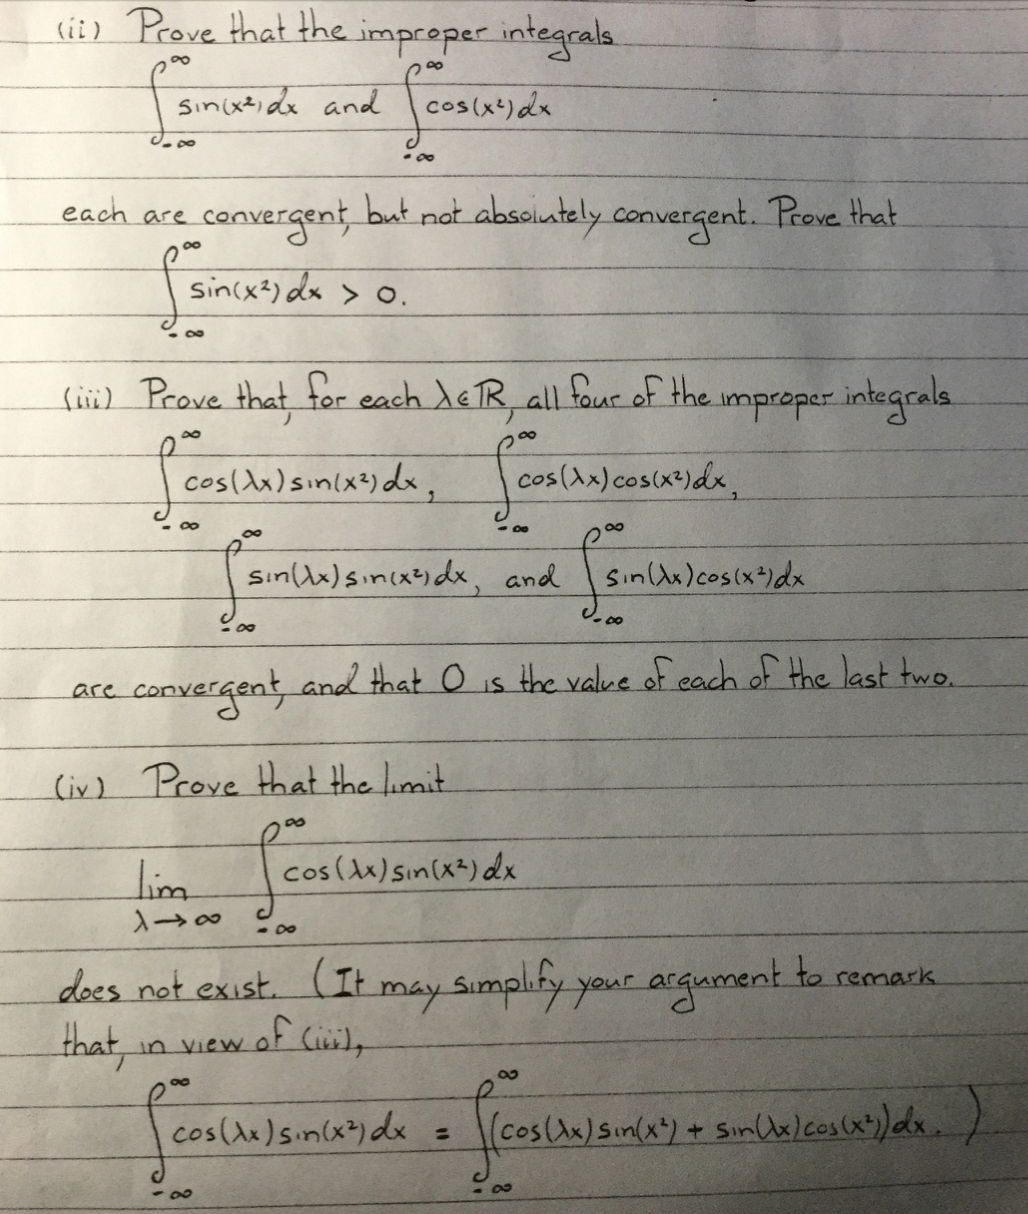 (ii) Prove that the improper integrals
∫_{-∞}^{∞} sin(x²)dx and ∫_{-∞}^{∞} cos(x²)dx
each are convergent, but not absolutely convergent. Prove that
∫_{-∞}^{∞} sin(x²)dx > 0.
(iii) Prove that, for each λ∈ℝ, all four of the improper integrals
∫_{-∞}^{∞} cos(λx)sin(x²)dx, ∫_{-∞}^{∞} cos(λx)cos(x²)dx,
∫_{-∞}^{∞} sin(λx)sin(x²)dx, and ∫_{-∞}^{∞} sin(λx)cos(x²)dx
are convergent, and that 0 is the value of each of the last two.
(iv) Prove that the limit
lim_{λ→∞} ∫_{-∞}^{∞} cos(λx)sin(x²)dx
does not exist. (It may simplify your argument to remark
that, in view of (iii),
∫_{-∞}^{∞} cos(λx)sin(x²)dx = ∫_{-∞}^{∞} (cos(λx)sin(x²) + sin(λx)cos(x²))dx. )